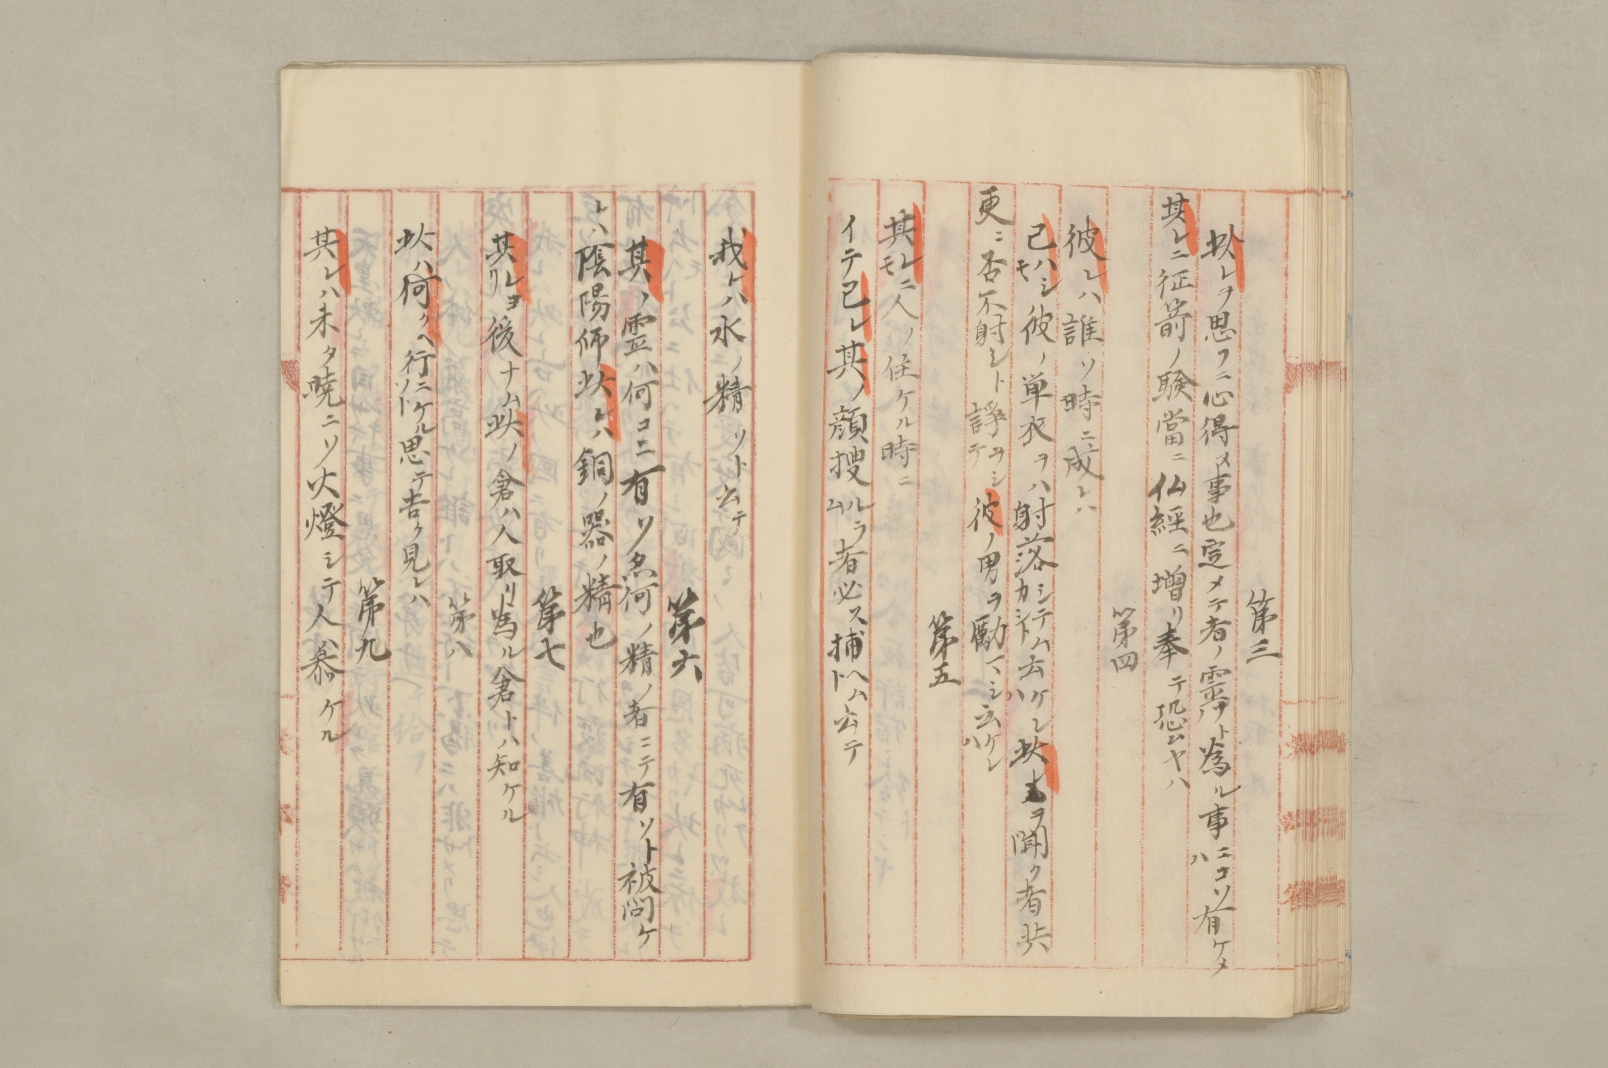 第三
此レヲ思フニ心得ヌ事也定メテ者ノ霊ナト為ル事ニコソハ有ケメ
其レニ征箭ノ験當ニ仏経ニ増リ奉テ恐ムヤハ
第四
彼レハ誰ソ時ニ成レハ
己ハシモ彼ノ単衣ヲハ射落シテムカシト云ケレハ此レヲ聞ク者共
更ニ否不射シト諍ヲシテ彼ノ男ヲ勵マシ云ケレハ
第五
其レモニ人ノ住ケル時ニ
イテ己レ其ノ顔捜ルラム者必ス捕ヘムト云テ
我レハ水ノ精ソト云テ
第六
其ノ霊ハ何コニ有ソ亦何ノ精ノ者ニテ有ソト被問ケ
レハ陰陽師此レハ銅ノ器ノ精也
第七
其レヨリ後ナム此ノ倉ハ人取リ為ル倉トハ知ケル
第八
此ハ何クヘ行ニケルソト思テ吉ク見レハ
第九
其レハ未タ暁ニソ火燈シテ人ハ暮ケル